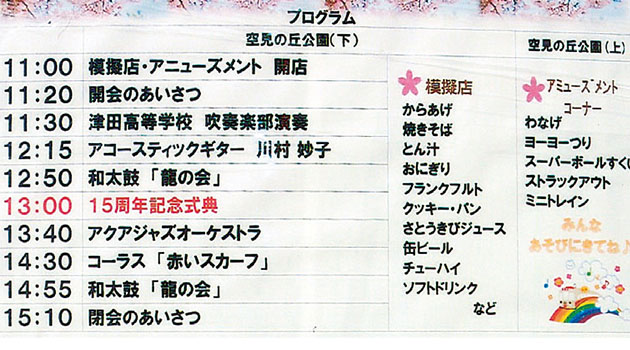 プログラム
空見の丘公園(下)
11:00 模擬店・アニューズメント 開店
11:20 開会のあいさつ
11:30 津田高等学校 吹奏楽部演奏
12:15 アコースティックギター 川村 妙子
12:50 和太鼓「龍の会」
13:00 15周年記念式典
13:40 アクアジャズオーケストラ
14:30 コーラス「赤いスカーフ」
14:55 和太鼓「龍の会」
15:10 閉会のあいさつ
模擬店
からあげ
焼きそば
とん汁
おにぎり
フランクフルト
クッキー・パン
さとうきびジュース
缶ビール
チューハイ
ソフトドリンク
など
空見の丘公園(上)
アミューズメント
コーナー
わなげ
ヨーヨーつり
スーパーボールすくい
ストラックアウト
ミニトレイン
みんな
あそびにきてね♪